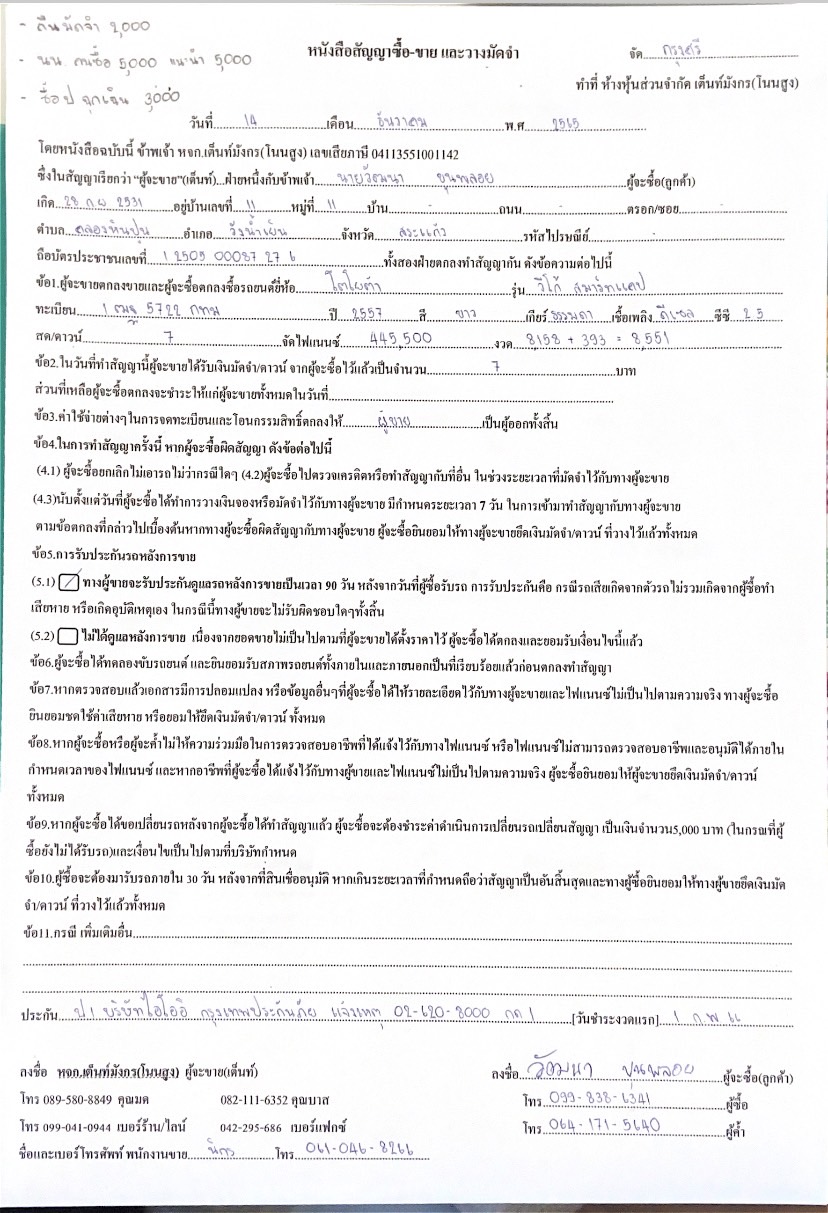 - คืนมัดจำ 2,000
- นน. คนซื้อ 5,000 แนะนำ 5,000
- ช็อป ฉุกเฉิน 3,000
หนังสือสัญญาซื้อ-ขาย และวางมัดจำ
จัด กรุงศรี
ทำที่ ห้างหุ้นส่วนจำกัด เต็นท์มังกร(โนนสูง)
วันที่ 14 เดือน ธันวาคม พ.ศ 2565
โดยหนังสือฉบับนี้ ข้าพเจ้า หจก.เต็นท์มังกร(โนนสูง) เลขเสียภาษี 04113551001142
ซึ่งในสัญญาเรียกว่า “ผู้จะขาย”(เต็นท์)...ฝ่ายหนึ่งกับข้าพเจ้า นายวัฒนา ขุนพลอย ผู้จะซื้อ(ลูกค้า)
เกิด 28 ก.พ 2531 อยู่บ้านเลขที่ 11 หมู่ที่ 11 บ้าน - ถนน - ตรอก/ซอย -
ตำบล คลองหินปูน อำเภอ วังน้ำเย็น จังหวัด สระแก้ว รหัสไปรษณีย์
ถือบัตรประชาชนเลขที่ 1 2505 00087 27 6 ทั้งสองฝ่ายตกลงทำสัญญากัน ดังข้อความต่อไปนี้
ข้อ1.ผู้จะขายตกลงขายและผู้จะซื้อตกลงซื้อรถยนต์ยี่ห้อ โตโยต้า รุ่น วีโก้ สมาร์ทแคป
ทะเบียน 1 ฒฐ 5722 กทม ปี 2557 สี ขาว เกียร์ ธรรมดา เชื้อเพลิง ดีเซล ซีซี 2.5
สด/ดาวน์ 7 จัดไฟแนนซ์ 445,500 งวด 8,158 + 393 = 8,551
ข้อ2.ในวันที่ทำสัญญานี้ผู้จะขายได้รับเงินมัดจำ/ดาวน์ จากผู้จะซื้อไว้แล้วเป็นจำนวน 7 บาท
ส่วนที่เหลือผู้จะซื้อตกลงจะชำระให้แก่ผู้จะขายทั้งหมดในวันที่
ข้อ3.ค่าใช้จ่ายต่างๆในการจดทะเบียนและโอนกรรมสิทธิ์ตกลงให้ ผู้ขาย เป็นผู้ออกทั้งสิ้น
ข้อ4.ในการทำสัญญาครั้งนี้ หากผู้จะซื้อผิดสัญญา ดังข้อต่อไปนี้
(4.1) ผู้จะซื้อยกเลิกไม่เอารถไม่ว่ากรณีใดๆ (4.2)ผู้จะซื้อไปตรวจเครดิตหรือทำสัญญากับที่อื่น ในช่วงระยะเวลาที่มัดจำไว้กับทางผู้จะขาย
(4.3)นับตั้งแต่วันที่ผู้จะซื้อได้ทำการวางเงินจองหรือมัดจำไว้กับทางผู้จะขาย มีกำหนดระยะเวลา 7 วัน ในการเข้ามาทำสัญญากับทางผู้จะขาย
ตามข้อตกลงที่กล่าวไปเบื้องต้นหากทางผู้จะซื้อผิดสัญญากับทางผู้จะขาย ผู้จะซื้อยินยอมให้ทางผู้จะขายยึดเงินมัดจำ/ดาวน์ ที่วางไว้แล้วทั้งหมด
ข้อ5.การรับประกันรถหลังการขาย
(5.1) ทางผู้ขายจะรับประกันดูแลรถหลังการขายเป็นเวลา 90 วัน หลังจากวันที่ผู้ซื้อรับรถ การรับประกันคือ กรณีรถเสียเกิดจากตัวรถไม่รวมเกิดจากผู้ซื้อทำ
เสียหาย หรือเกิดอุบัติเหตุเอง ในกรณีนี้ทางผู้ขายจะไม่รับผิดชอบใดๆทั้งสิ้น
(5.2) ไม่ได้ดูแลหลังการขาย เนื่องจากยอดขายไม่เป็นไปตามที่ผู้จะขายได้ตั้งราคาไว้ ผู้จะซื้อได้ตกลงและยอมรับเงื่อนไขนี้แล้ว
ข้อ6.ผู้จะซื้อได้ทดลองขับรถยนต์ และยินยอมรับสภาพรถยนต์ทั้งภายในและภายนอกเป็นที่เรียบร้อยแล้วก่อนตกลงทำสัญญา
ข้อ7.หากตรวจสอบแล้วเอกสารมีการปลอมแปลง หรือข้อมูลอื่นๆที่ผู้จะซื้อได้ให้รายละเอียดไว้กับทางผู้จะขายและไฟแนนซ์ไม่เป็นไปตามความจริง ทางผู้จะซื้อ
ยินยอมชดใช้ค่าเสียหาย หรือยอมให้ยึดเงินมัดจำ/ดาวน์ ทั้งหมด
ข้อ8.หากผู้จะซื้อหรือผู้จะค้ำไม่ให้ความร่วมมือในการตรวจสอบอาชีพที่ได้แจ้งไว้กับทางไฟแนนซ์ หรือไฟแนนซ์ไม่สามารถตรวจสอบอาชีพและอนุมัติได้ภายใน
กำหนดเวลาของไฟแนนซ์ และหากอาชีพที่ผู้จะซื้อได้แจ้งไว้กับทางผู้ขายและไฟแนนซ์ไม่เป็นไปตามความจริง ผู้จะซื้อยินยอมให้ผู้จะขายยึดเงินมัดจำ/ดาวน์
ทั้งหมด
ข้อ9.หากผู้จะซื้อได้ขอเปลี่ยนรถหลังจากผู้จะซื้อได้ทำสัญญาแล้ว ผู้จะซื้อจะต้องชำระค่าดำเนินการเปลี่ยนรถเปลี่ยนสัญญา เป็นเงินจำนวน5,000 บาท (ในกรณที่ผู้
ซื้อยังไม่ได้รับรถ)และเงื่อนไขเป็นไปตามที่บริษัทกำหนด
ข้อ10.ผู้ซื้อจะต้องมารับรถภายใน 30 วัน หลังจากที่สินเชื่ออนุมัติ หากเกินระยะเวลาที่กำหนดถือว่าสัญญาเป็นอันสิ้นสุดและทางผู้ซื้อยินยอมให้ทางผู้ขายยึดเงินมัด
จำ/ดาวน์ ที่วางไว้แล้วทั้งหมด
ข้อ11.กรณี เพิ่มเติมอื่น
ประกัน ป.1 บริษัทไอโออิ กรุงเทพประกันภัย แจ้งเหตุ 02-620-8000 กด 1 [วันชำระงวดแรก] 1 ก.พ 66
ลงชื่อ หจก.เต็นท์มังกร(โนนสูง) ผู้จะขาย(เต็นท์)
ลงชื่อ วัฒนา ขุนพลอย ผู้จะซื้อ(ลูกค้า)
โทร 089-580-8849 คุณมด 082-111-6352 คุณบาส
โทร 099-838-6341 ผู้ซื้อ
โทร 099-041-0944 เบอร์ร้าน/ไลน์ 042-295-686 เบอร์แฟกซ์
โทร 064-171-5640 ผู้ค้ำ
ชื่อและเบอร์โทรศัพท์ พนักงานขาย นิกร โทร 061-046-8266